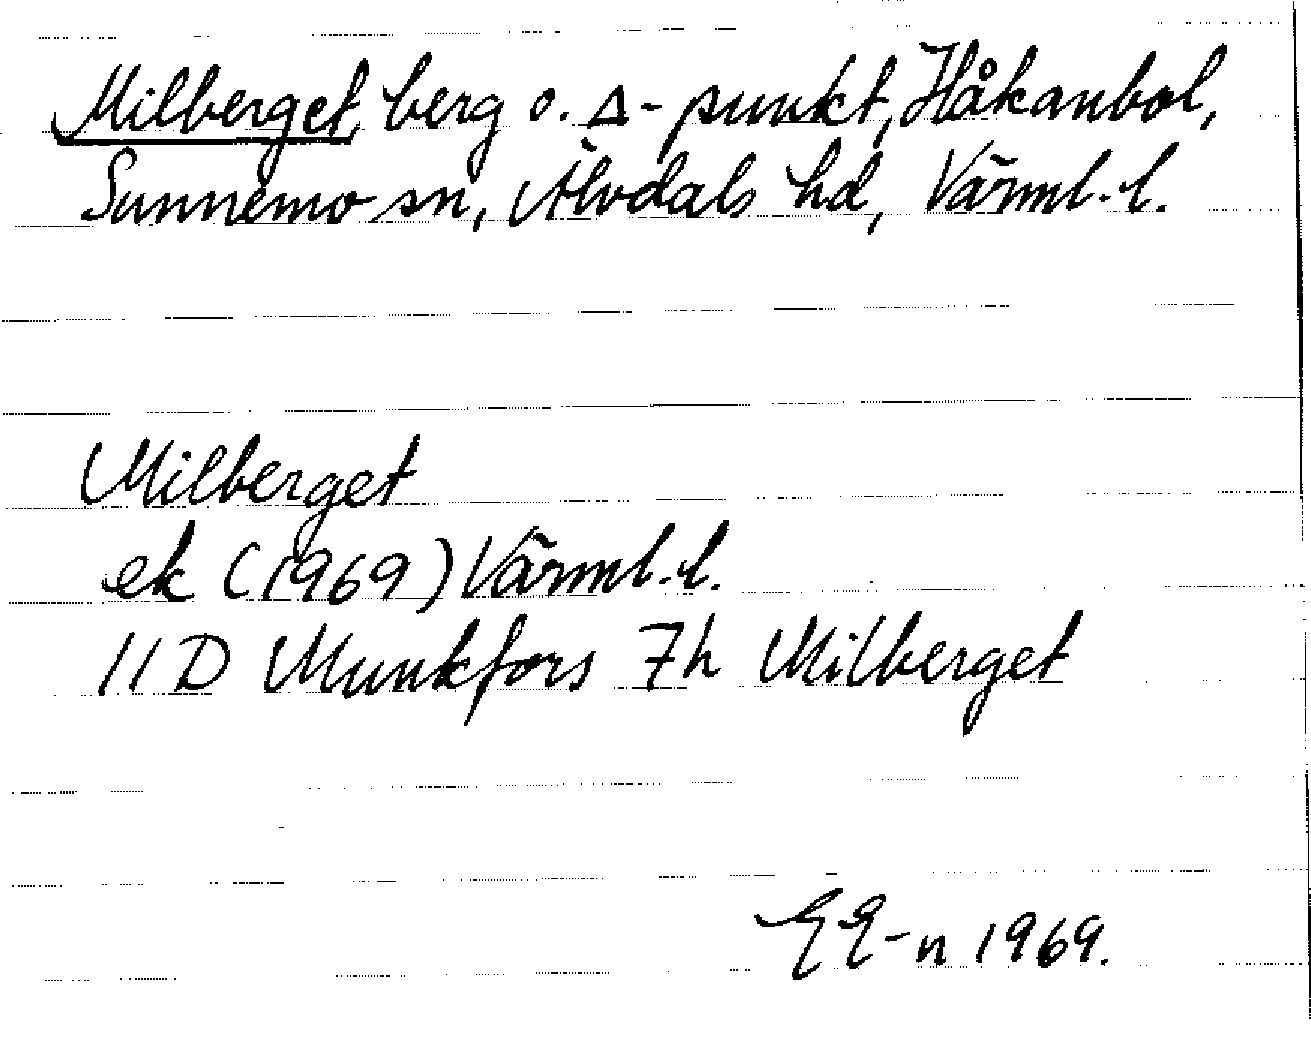 Milberget, berg o. Δ-punkt, Håkanbol,
Sunnemo sn, Älvdals hd, Värml. l.
Milberget
ek (1969) Värml. l.
11 D Munkfors 7h Milberget
EE-n 1969.